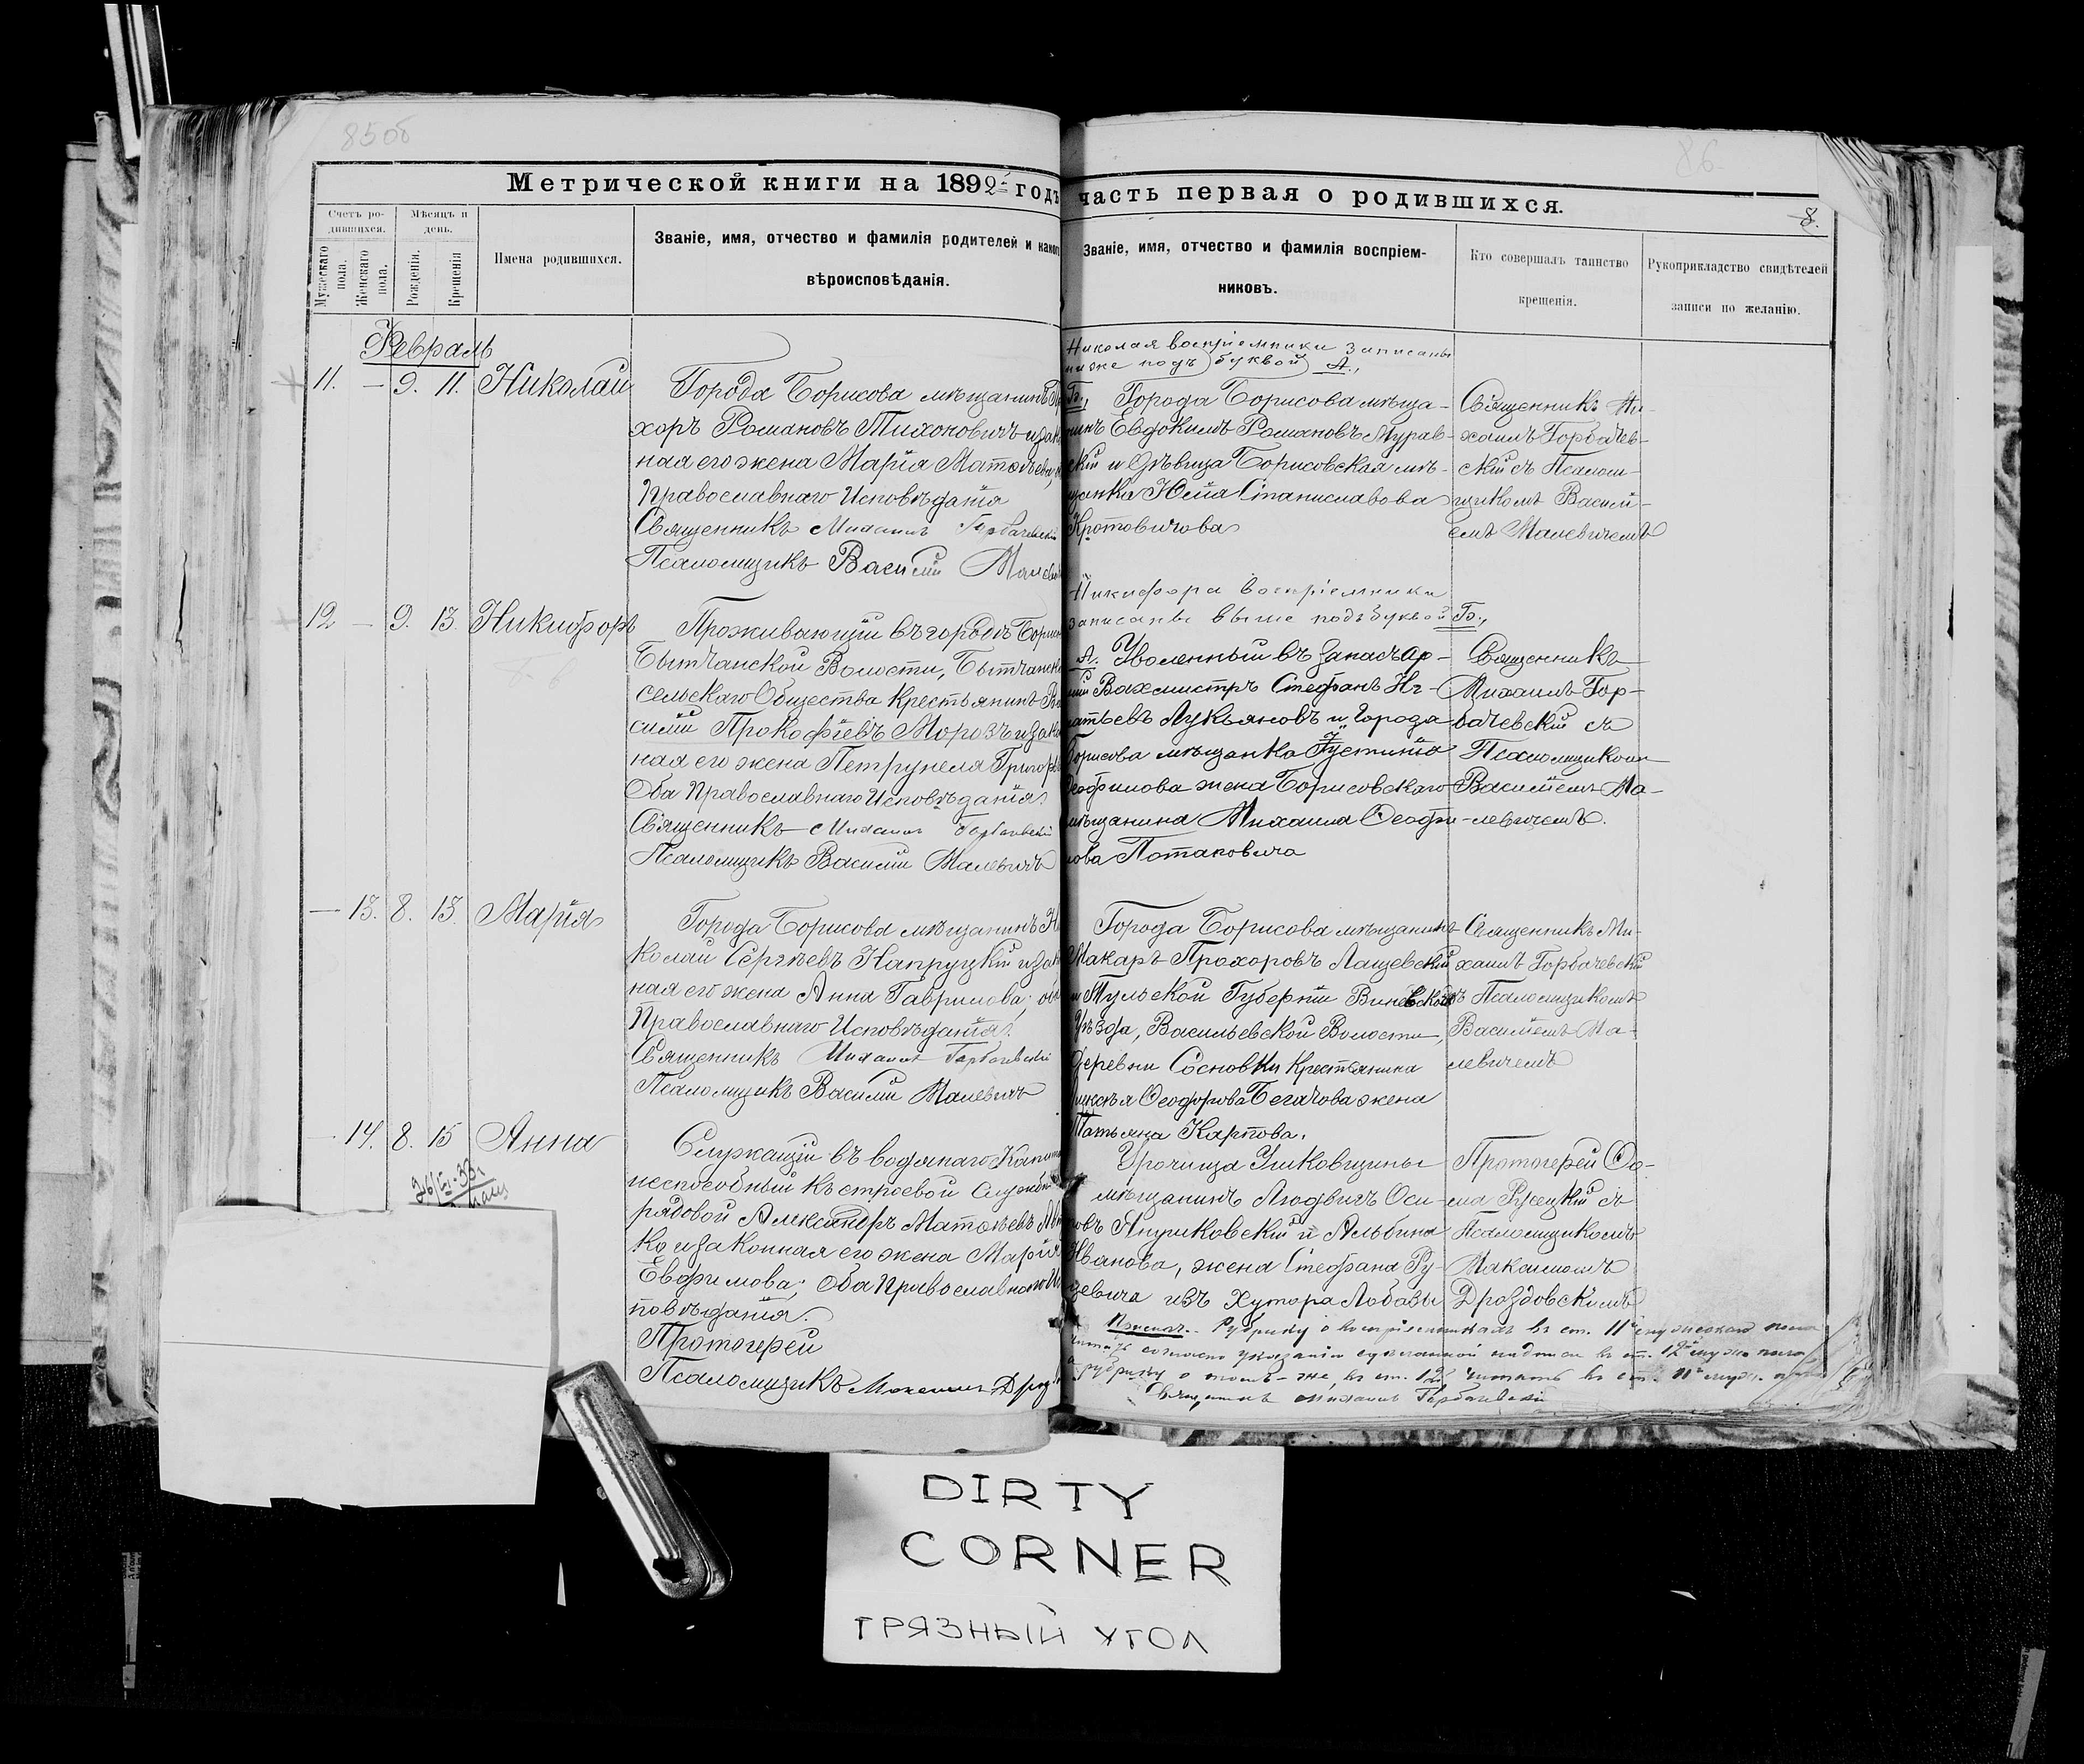 85об
86
Метрической книги на 1892 годъ часть первая о родившихся.
8.
Счетъ ро-
дившихся.
Мужескаго
пола.
Женскаго
пола.
Мѣсяцъ и
день.
Рожденія.
Крещенія
Имена родившихся.
Званіе, имя, отчество и фамилія родителей и какого
вѣроисповѣданія.
Званіе, имя, отчество и фамилія воспріем-
никовъ.
Кто совершалъ таинство
крещенія.
Рукоприкладство свидѣтелей
записи по желанію.
Февраль
11. — 9. 11. Николай
Города Борисова мѣщанинъ
хоръ Романовъ Тихоновичъ и зак
ная его жена Марія Матѳѣева,
Православнаго Исповѣданія
Священникъ Михаилъ Горбачевскій
Псаломщикъ Василій Малеви
Николая воспріемники записаны
ниже подъ буквой А.,
Б., Города Борисова мѣща-
нинъ Евдокимъ Романовъ Мурав-
скій и дѣвица Борисовская мѣ-
щанка Юлія Станиславова
Кротовичова
Священникъ Ми-
хаилъ Горбачев-
скій съ Псалом-
щикомъ Василі-
емъ Малевичемъ
12 — 9. 13. Никифоръ
Проживающій въ городѣ Борис
Бытчанской Волости, Бытчанск
сельскаго Общества крестьянинъ Ва
силій Прокофіевъ Морозъ и зак
ная его жена Петрунеля Григорь
Оба Православнаго Исповѣданія
Священникъ Михаилъ Горбачевскій
Псаломщикъ Василій Малевичъ
Никифора воспріемники
записаны выше подъ буквой Б.,
А. Уволенный въ запасъ ар-
міи Вахмистръ Стефанъ Иг-
натьевъ Лукьяновъ и Города
Борисова мѣщанка Іустинія
Ѳеофилова жена Борисовскаго
мѣщанина Михаила Ѳеофи-
лова Потаповича
Священникъ
Михаилъ Гор-
бачевскій съ
Псаломщикомъ
Василіемъ Ма-
левичемъ.
— 13. 8. 13. Марія
Города Борисова мѣщанинъ Н
колай Сергѣевъ Напруцкій и зак
ная его жена Анна Гаврилова; об
Православнаго Исповѣданія.
Священникъ Михаилъ Горбачевскій
Псаломщикъ Василій Малевичъ
Города Борисова мѣщанинъ
Макаръ Прохоровъ Лащевскій
и Тульской Губерніи Веневской
уѣзда, Васильевской Волости,
деревни Сосновки крестьянина
Алексѣя Ѳеодорова Бегачова жена
Татьяна Карпова.
Священникъ Ми-
хаилъ Горбачевскій
съ Псаломщикомъ
Василіемъ Ма-
левичемъ
— 14. 8. 15 Анна
Служащій въ водянаго
неспособный къ строевой службѣ
рядовой Александръ Матѳѣевъ
ко и законная его жена Марія
Евфимова; Оба Православнаго Ис
повѣданія.
Протоіерей
Псаломщикъ Максимъ Дрозд
Урочища Ушковщины
мѣщанинъ Людвигъ Оси-
повъ Янушковскій и Альбина
Иванова, жена Стефана Ру-
цевича изъ Хутора Лобавы
Протоіерей Ѳо-
ма Ружецкій съ
Псаломщикомъ
Максимомъ
Дроздовскимъ
Рубрику о воспріемникахъ въ ст. 11й мужскаго пола
читать согласно указанія сдѣланной надписи въ ст. 12й муж. пола
а рубрику о томъ-же, въ ст. 12й читать въ ст. 11й муж. пола
Священникъ Михаилъ Горбачевскій
DIRTY
CORNER
ГРЯЗНЫЙ УГОЛ